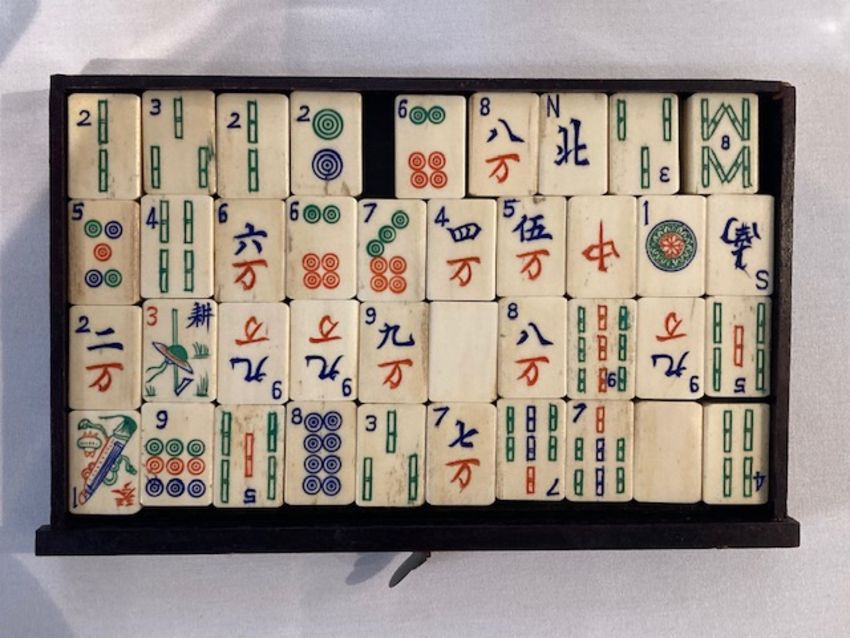 2 3 2 2 6 8 八 万 N 北 3 8
5 4 6 六 万 6 7 4 四 万 5 伍 万 中 1 S 南
2 二 万 3 耕 9 九 万 9 九 万 9 九 万 8 八 万 9 9 九 万 5
1 9 5 8 3 7 七 万 7 7 4